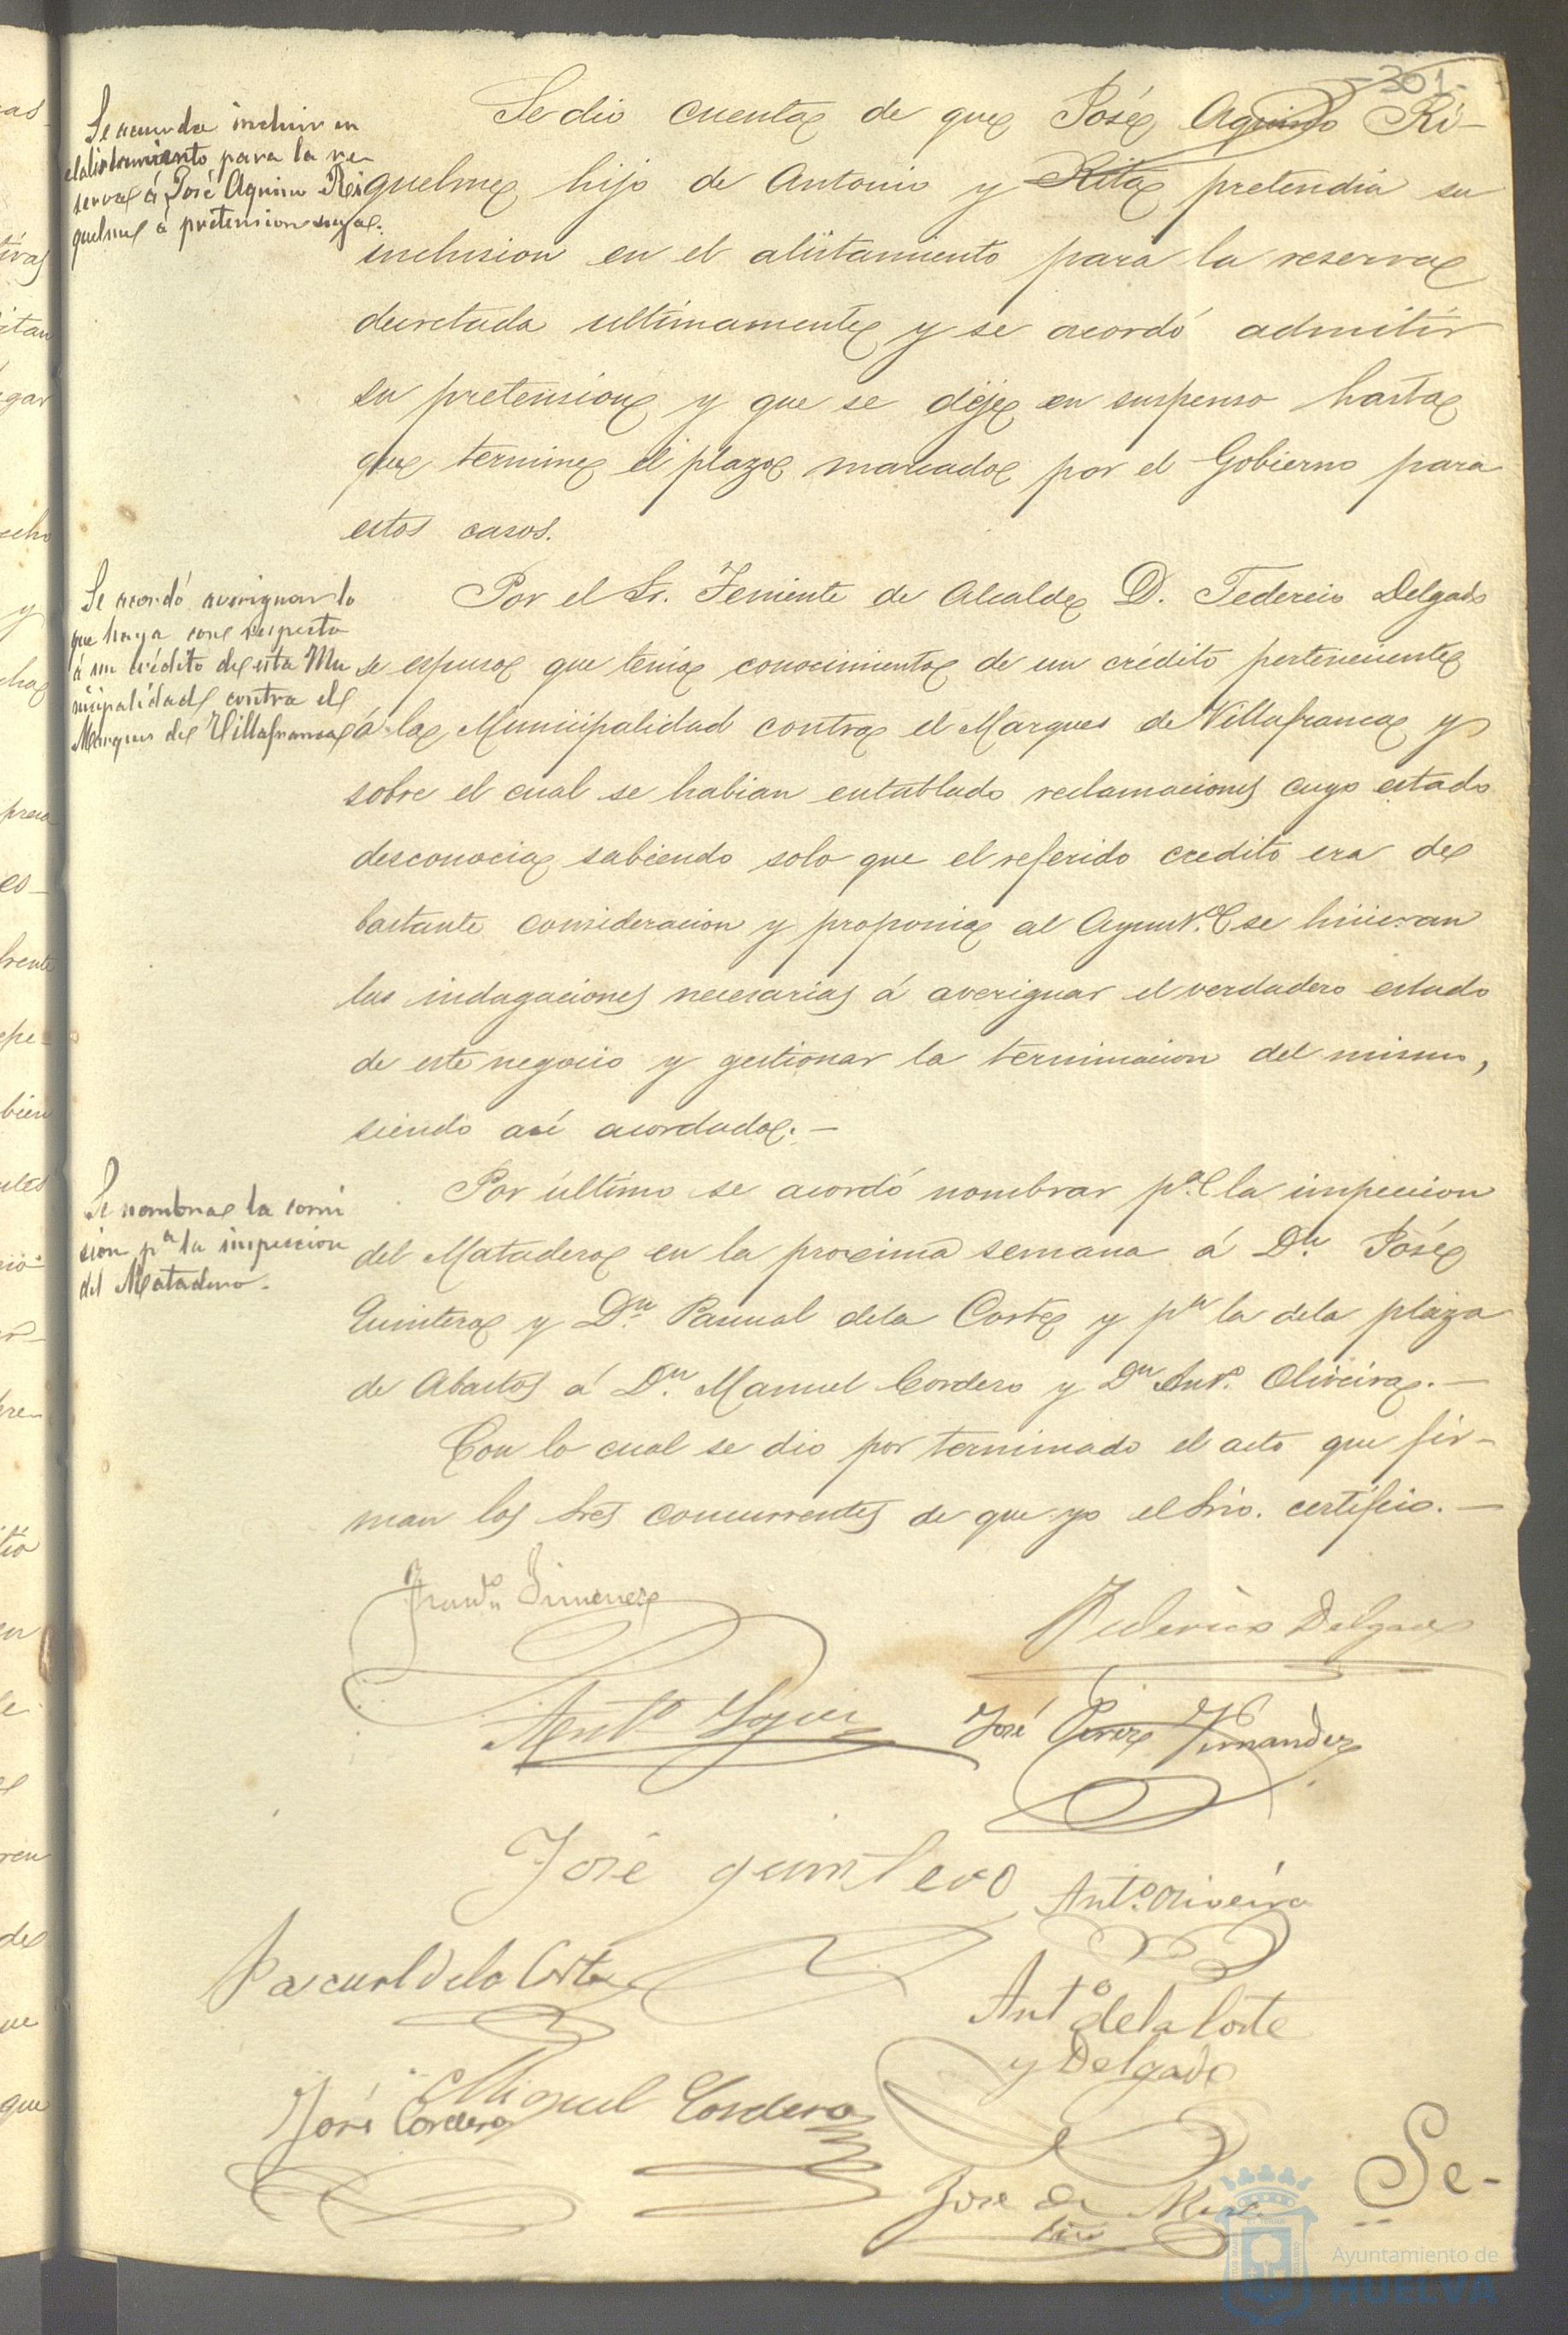 301-
Se acuerda incluir en
el alistamiento para la re
serva á José Aquino Ri
quelme á pretension suya.
Se dio cuenta de que José Aquino Ri-
quelme hijo de Antonio y Rita pretendia su
inclusion en el alistamiento para la reserva
decretada ultimamente y se acordó admitir
su pretension y que se deje en suspenso hasta
que termine el plazo marcado por el Gobierno para
estos casos.
Se acordó averiguar lo
que haya con respecto
á un crédito de esta Mu
nicipalidad contra el
Marques de Villafranca
Por el Sr. Teniente de Alcalde D. Federico Delgado
se espuso que tenia conocimiento de un crédito perteneciente
á la Municipalidad contra el Marques de Villafranca y
sobre el cual se habian entablado reclamaciones cuyo estado
desconocia sabiendo solo que el referido credito era de
bastante consideracion y proponia al Ayunt.º se hicieran
las indagaciones necesarias á averiguar el verdadero estado
de este negocio y gestionar la terminacion del mismo,
siendo así acordado. –
Se nombra la comi
sion pª la inspeccion
del Matadero.
Por último se acordó nombrar p.ª la inspeccion
del Matadero en la proxima semana á D.n José
Quintero y D.n Pascual dela Corte y pª la dela plaza
de Abastos á D.n Manuel Cordero y D.n Ant.º Oliveira. –
Con lo cual se dio por terminado el acto que fir-
man los Sres concurrentes de que yo el Srio. certifico. –
Franco Jimenez
Federico Delgado
Antº Lopez
José Perez Fernandez
José quintero
Antº Oliveira
Pascual dela Corte
Antº dela Corte
y Delgado
José Cordero
Miguel Cordero
Jose de
Srio
Se-
Ayuntamiento de
HUELVA